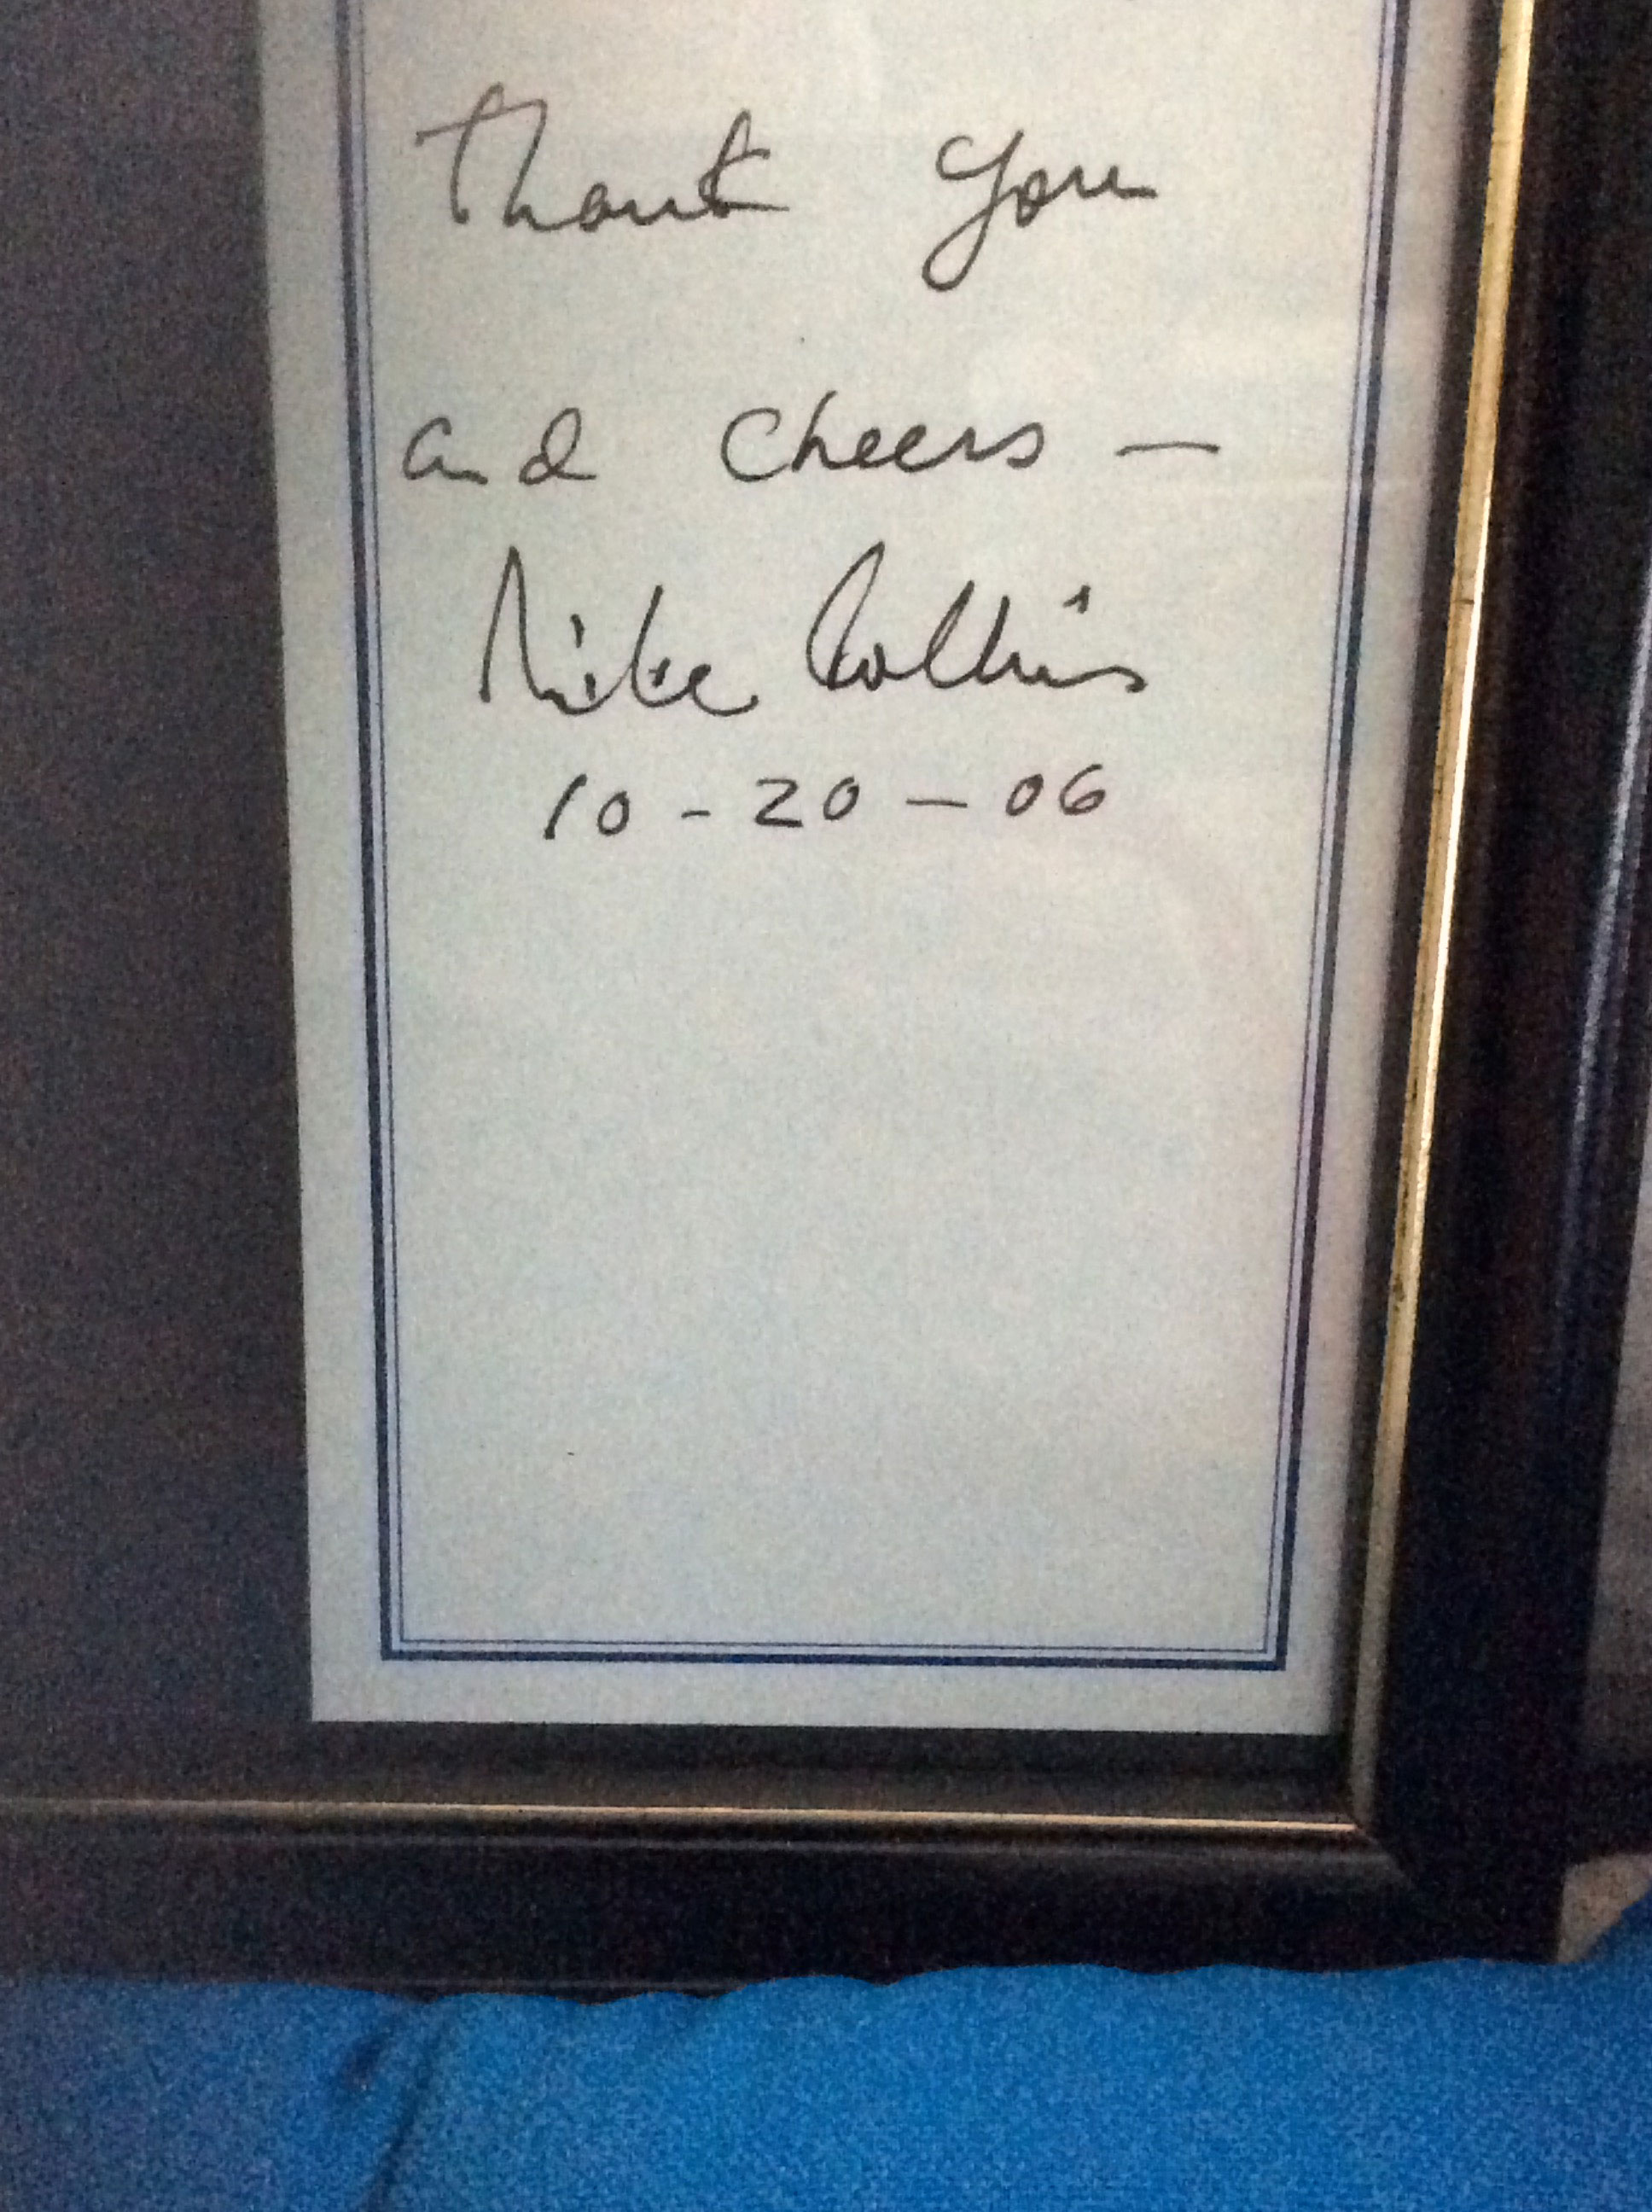 Thank you
and cheers —
Mike Collins
10 - 20 - 06